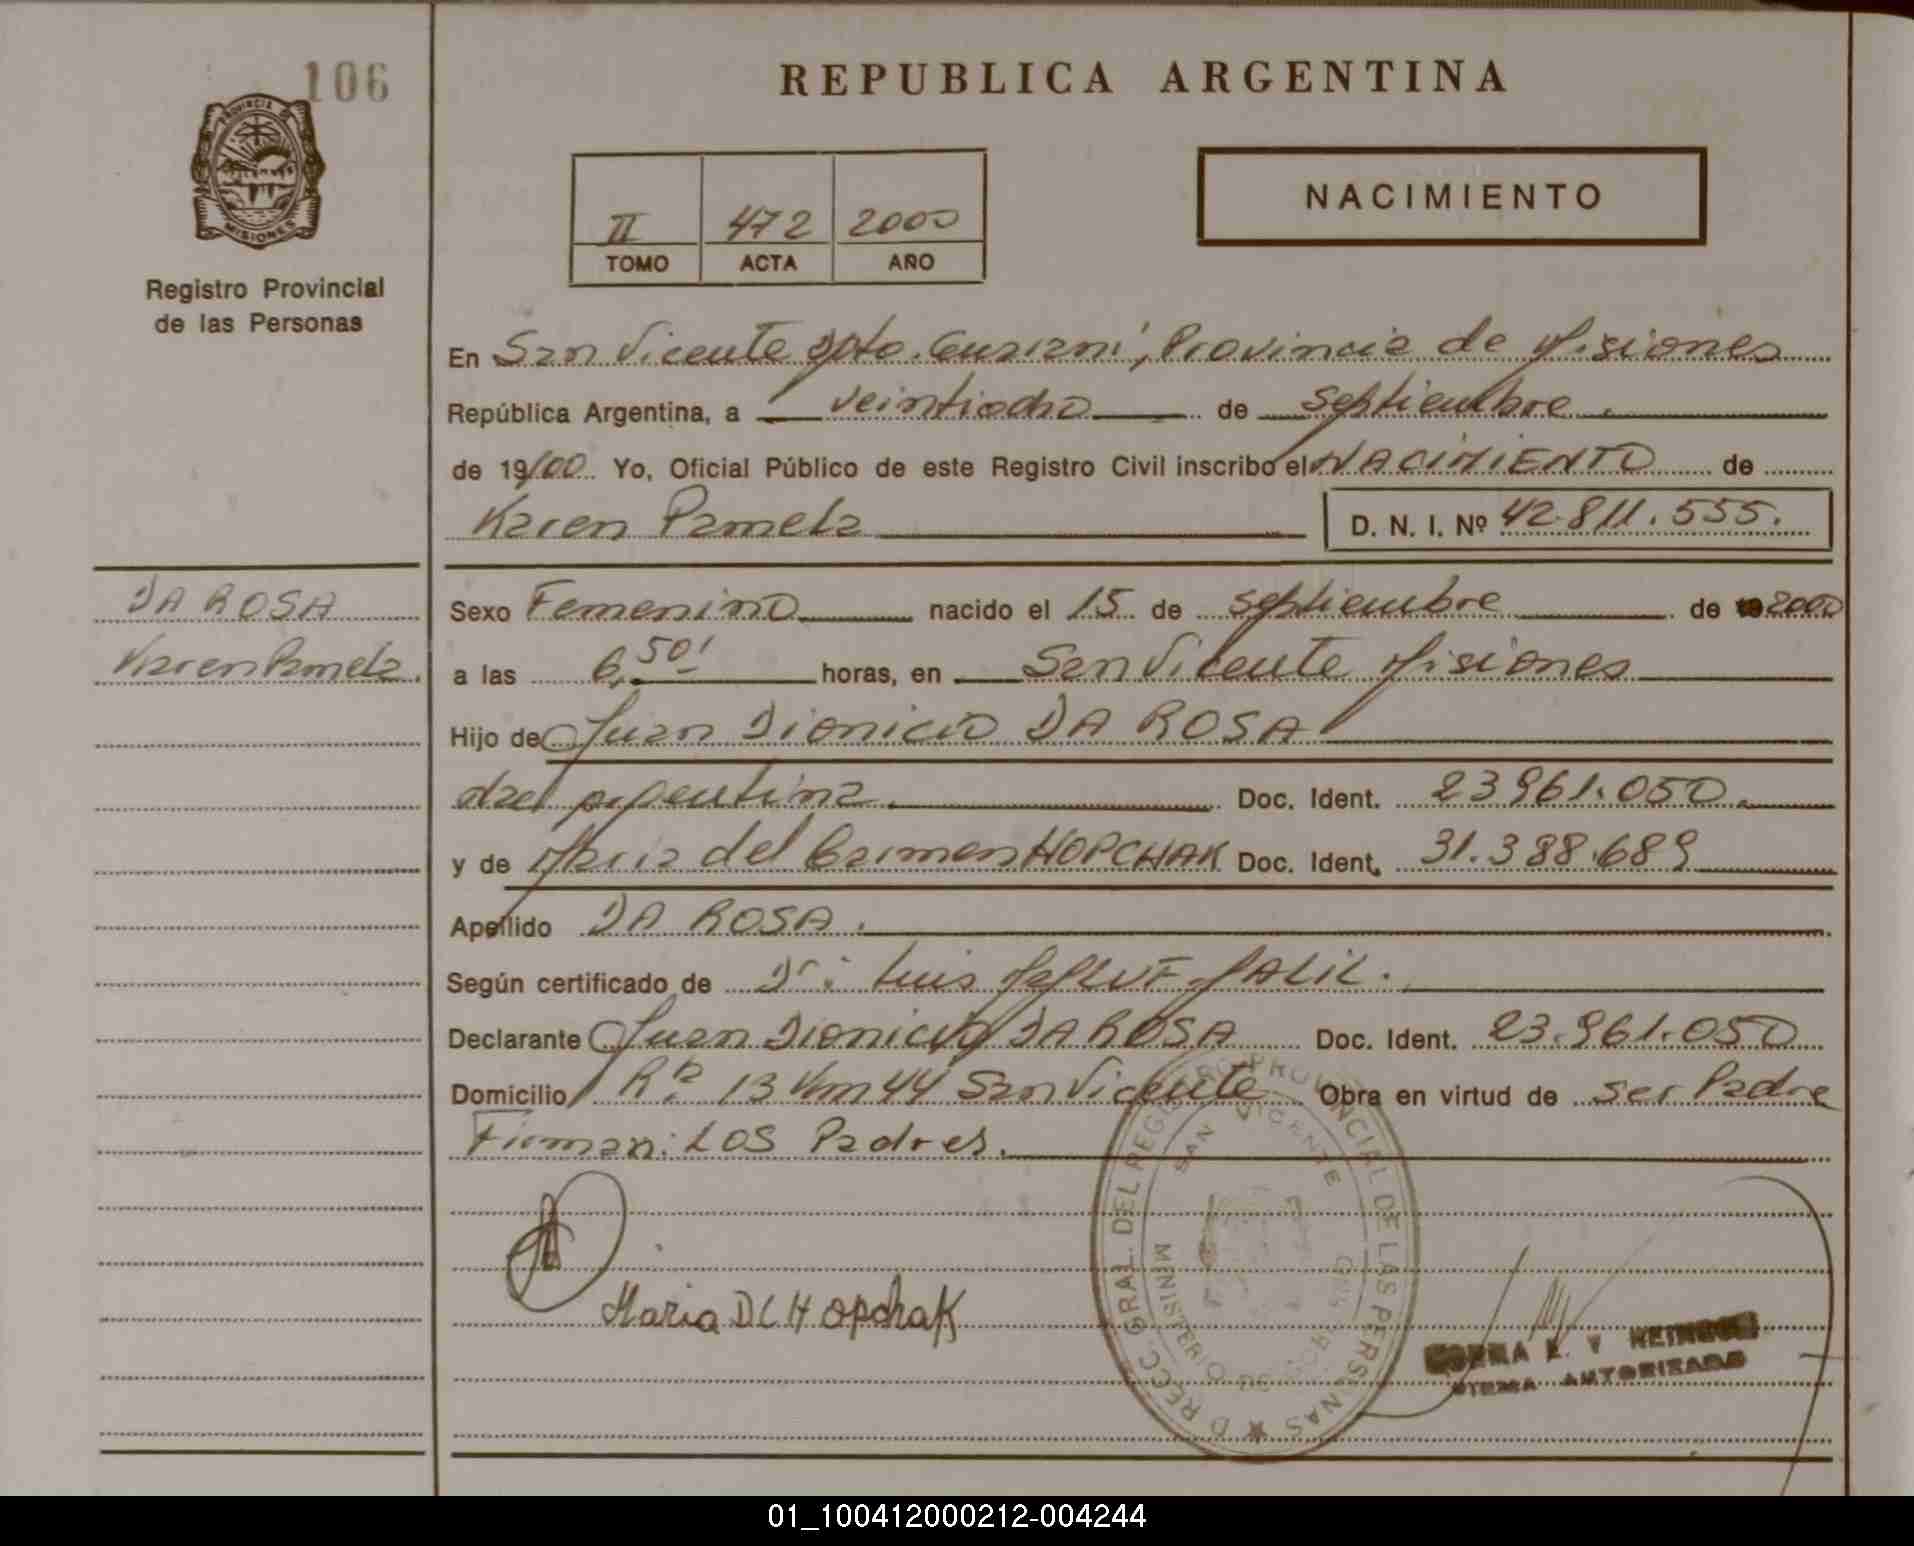 106
PROVINCIA DE
MISIONES
Registro Provincial
de las Personas
REPUBLICA ARGENTINA
II 472 2000
TOMO ACTA AÑO
NACIMIENTO
En San Vicente Dpto. Guaraní, Provincia de Misiones
República Argentina, a veintiocho de septiembre.
de 19/00 Yo, Oficial Público de este Registro Civil inscribo el NACIMIENTO de
Karen Pamela D. N. I. Nº 42.811.555.
DA ROSA
Karen Pamela.
Sexo Femenino nacido el 15 de septiembre de 2000
a las 6,50' horas, en San Vicente Misiones
Hijo de Juan Dionicio DA ROSA
Doc. Ident. 23.961.050.
y de Maria del Carmen HOPCHAK Doc. Ident. 31.388.689
Apellido DA ROSA.
Según certificado de Dr: Luis JALIL.
Declarante Juan Dionicio DA ROSA Doc. Ident. 23.961.050
Domicilio Rta 13 Km 44 San Vicente Obra en virtud de ser Padre
Firman: LOS Padres.
Maria D C Hopchak
D RECC GRAL. DEL REGISTRO PROVINCIAL DE LAS PERSONAS
SAN VICENTE
MINISTERIO DE GOBIERNO
AUTORIZADO
01_100412000212-004244